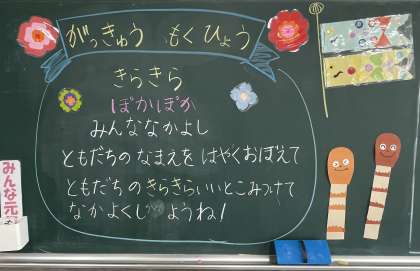 がっきゅう もくひょう
きらきら
ぽかぽか
みんななかよし
ともだちの なまえを はやくおぼえて
ともだちのきらきらいいとこみつけて
なかよくし ようね!
みんな元